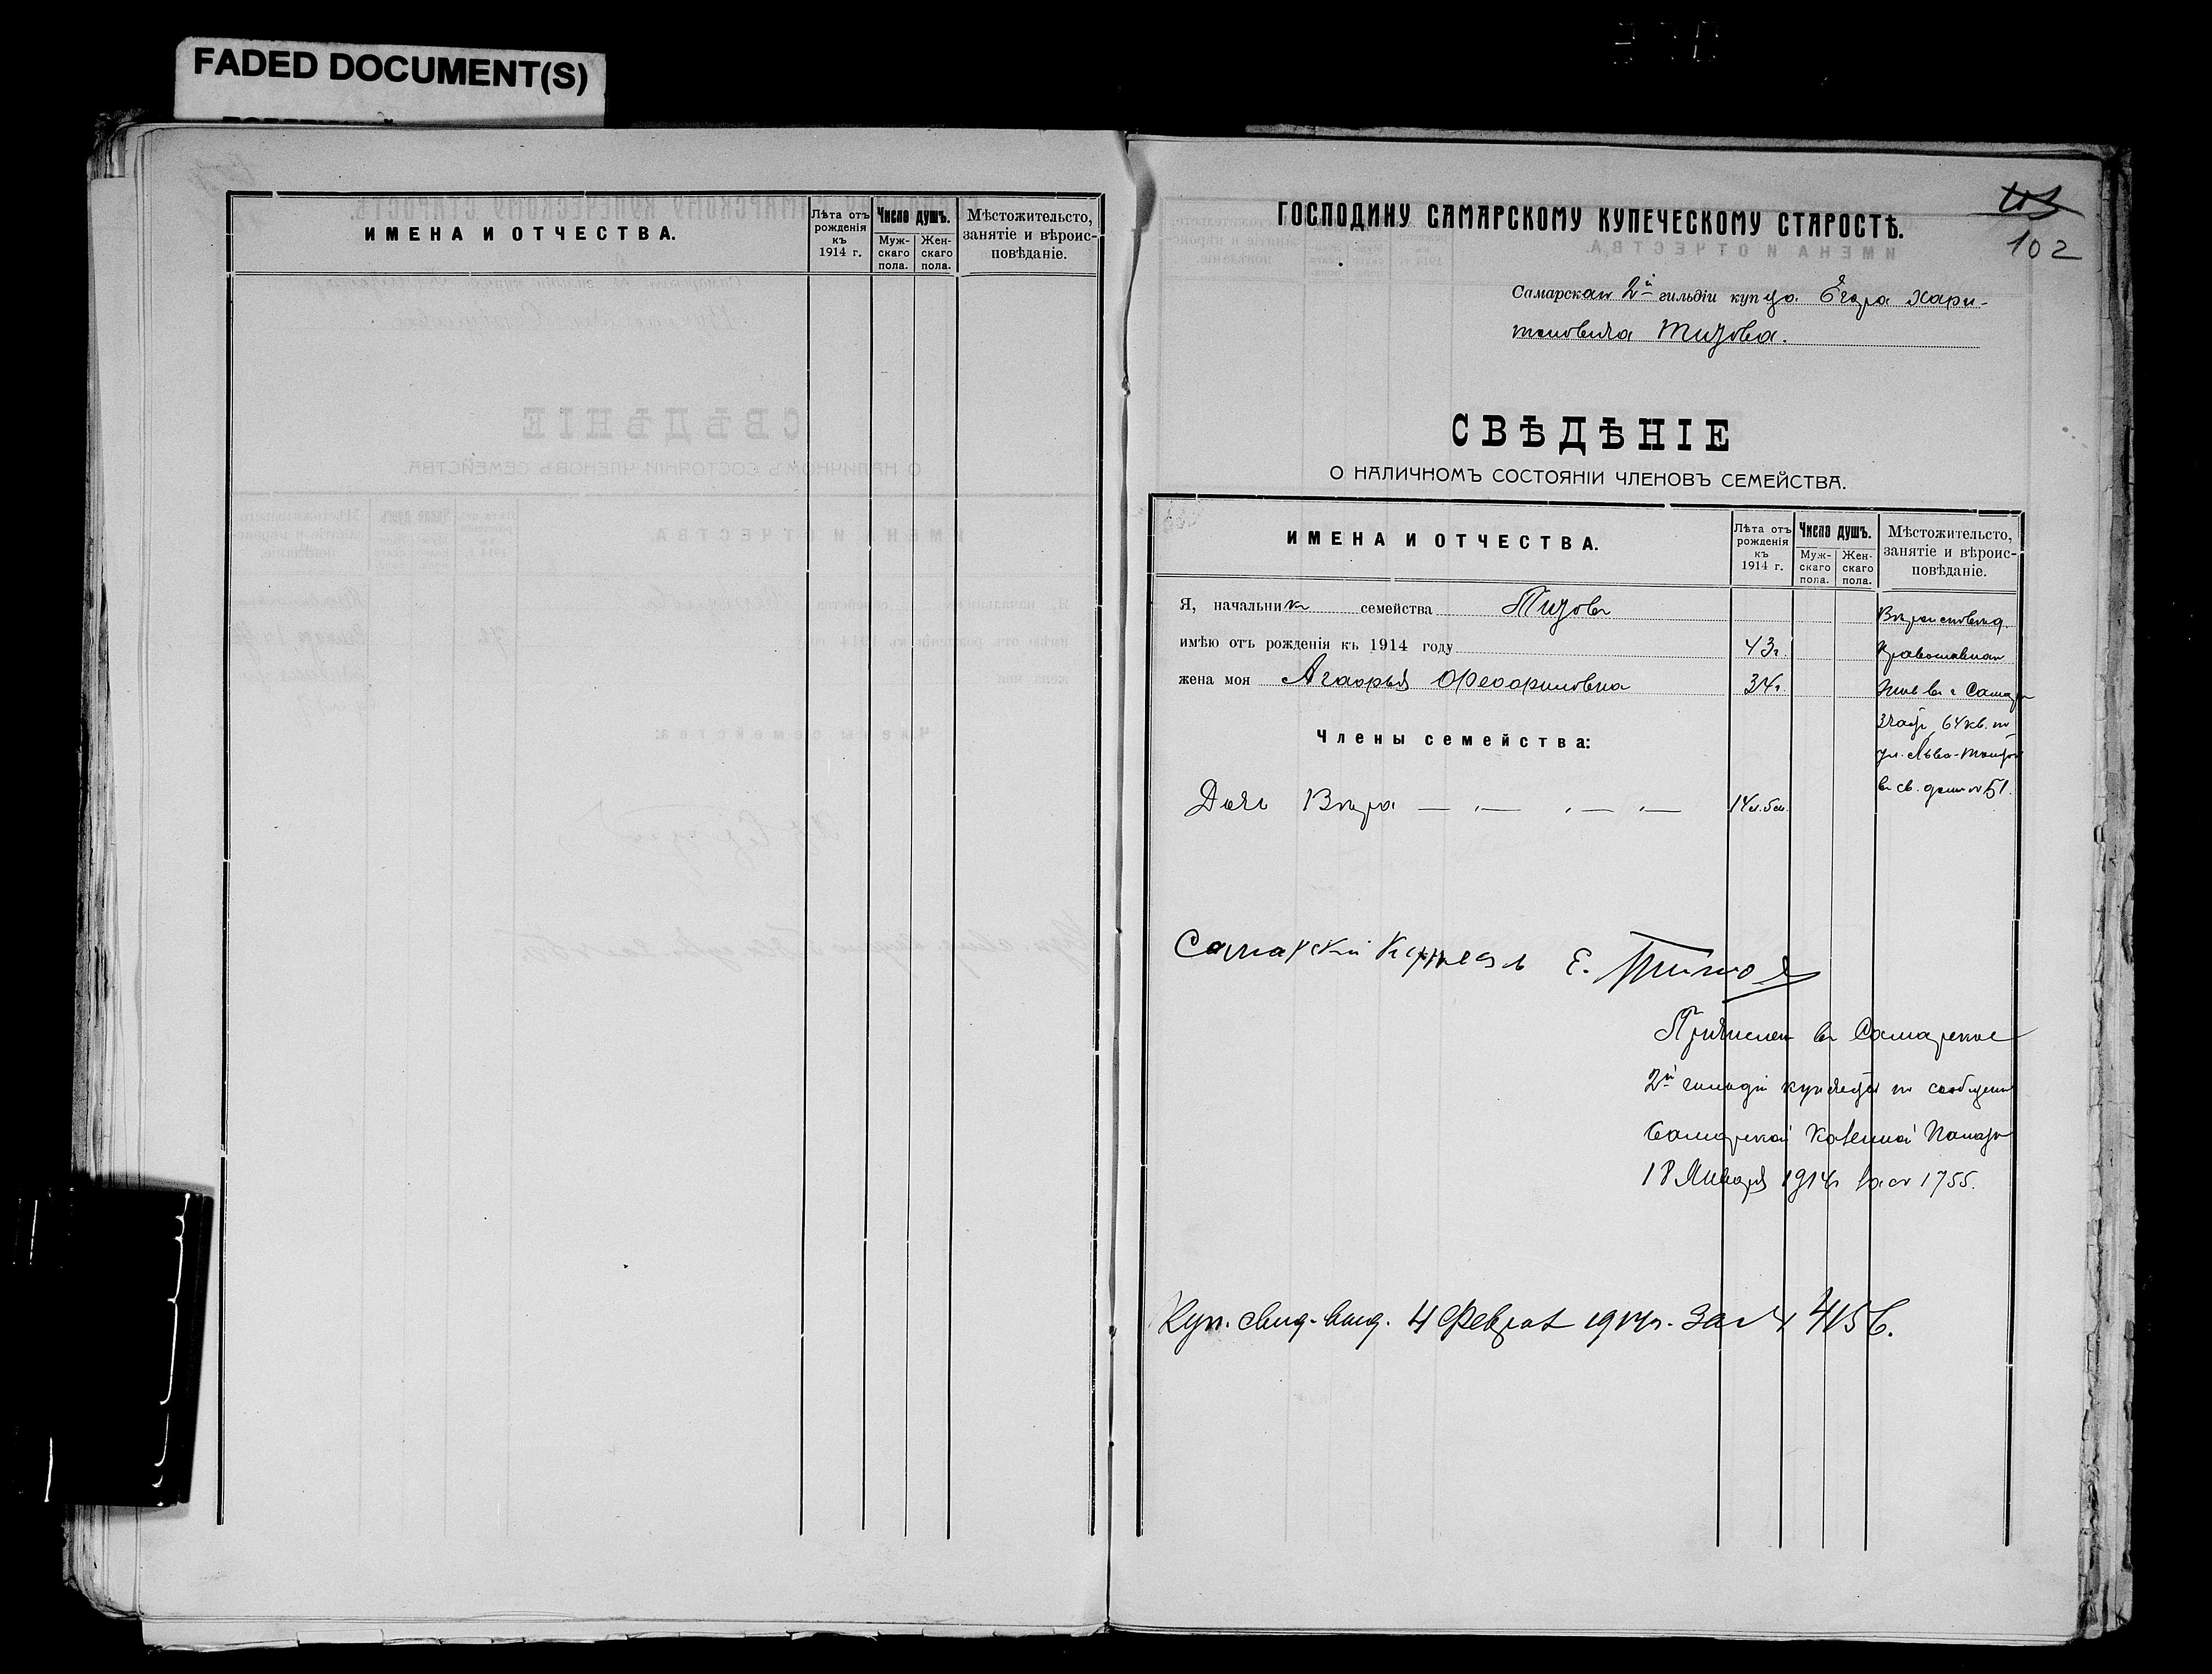 FADED DOCUMENT(S)
ИМЕНА И ОТЧЕСТВА.
Лѣта отъ рожденія къ 1914 г.
Число душъ.
Мужскаго пола.
Женскаго пола.
Мѣстожительсто, занятіе и вѣроисповѣданіе.
102
ГОСПОДИНУ САМАРСКОМУ КУПЕЧЕСКОМУ СТАРОСТѢ.
Самарскаго 2й гильдіи купца Егора Хари-
тоновича Титова.
СВѢДѢНІЕ
О НАЛИЧНОМЪ СОСТОЯНІИ ЧЛЕНОВЪ СЕМЕЙСТВА.
ИМЕНА И ОТЧЕСТВА.
Лѣта отъ рожденія къ 1914 г.
Число душъ.
Мужскаго пола.
Женскаго пола.
Мѣстожительсто, занятіе и вѣроисповѣданіе.
Я, начальникъ семейства Титовъ
имѣю отъ рожденія къ 1914 году 43 г.
жена моя Агафья 34 г.
Члены семейства:
Дочь Вѣра 14 л. 5 м.
Вѣроисповѣд.
Православнаго
Жив. въ г. Самарѣ
3 части 64 кв. по
ул. Льва-Толстого
въ св. домѣ № 51.
Самарскій Купецъ Е. Титовъ
Причисленъ въ Самарское
2й гильдіи купечество по сообщенію
Самарской Казенной Палаты
18 Января 1914 г. за № 1755.
Куп. свид. выд. 4 Февраля 1914 г. за № 4156.